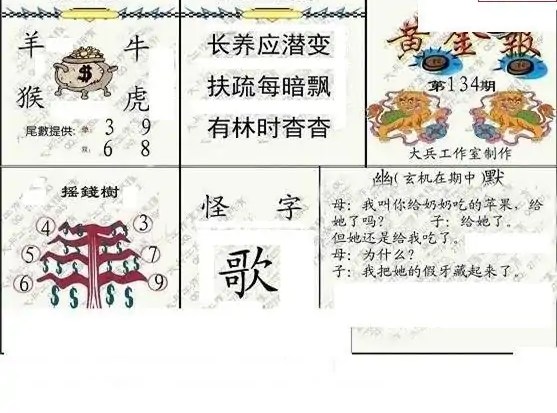 羊 牛
猴 虎
尾數提供: 单: 3 9
双: 6 8
长养应潜变
扶疏每暗飘
有林时杳杳
黄金報
第134期
大兵工作室制作
摇錢樹
4 3
5 7
6 9
怪 字
歌
幽(玄机在期中)默
母:我叫你给奶奶吃的苹果,给
她了吗? 子:给她了。
但她还是给我吃了。
母:为什么?
子:我把她的假牙藏起来了